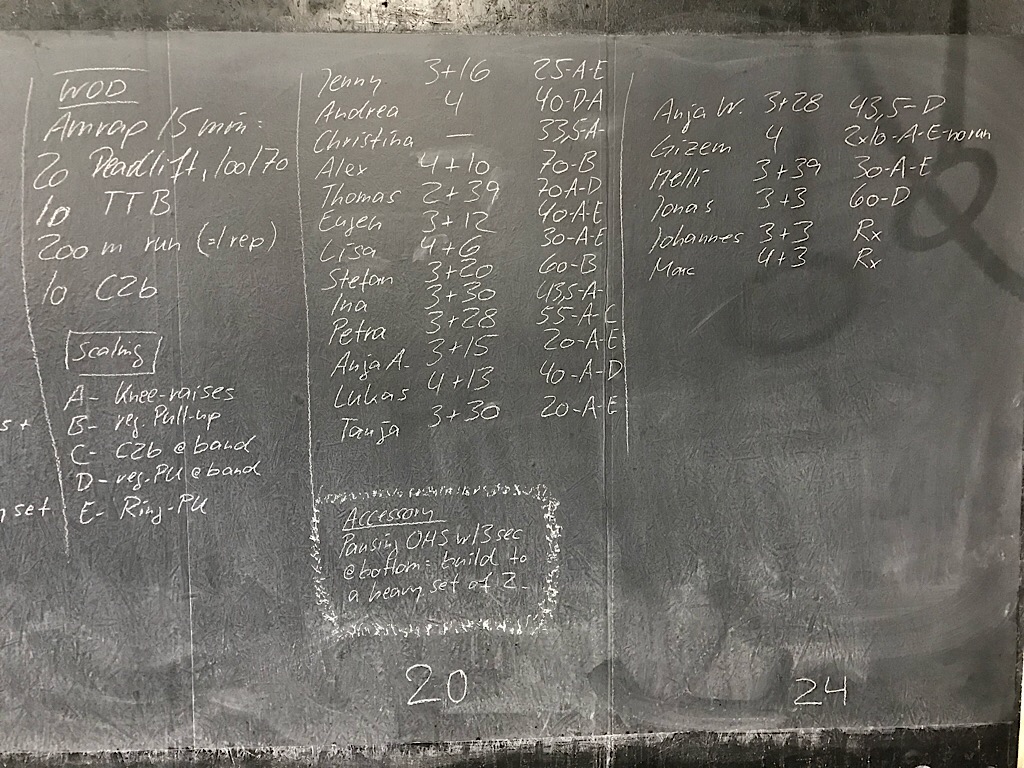 WOD
Amrap 15 min:
20 Deadlift, 100/70
10 TTB
200 m run (=1 rep)
10 C2b
Scaling
A- Knee-raises
B- reg. Pull-up
C- C2b @ band
D- reg. PU @ band
E- Ring-PU
Jenny 3+16 25-A-E
Andrea 4 40-D-A
Christina — 33,5-A-
Alex 4+10 70-B
Thomas 2+39 70A-D
Eugen 3+12 40-A-E
Lisa 4+6 30-A-E
Stefan 3+20 60-B
Ina 3+30 43,5-A-
Petra 3+28 55-A-C
Anja A. 3+15 20-A-E
Lukas 4+13 40-A-D
Tanja 3+30 20-A-E
Accessory
Pausing OHS w/3sec
@bottom: build to
a heavy set of 2-
20
Anja W. 3+28 43,5-D
Gizem 4 2x10-A-E-no run
Melli 3+39 30-A-E
Jonas 3+3 60-D
Johannes 3+3 Rx
Marc 4+3 Rx
24